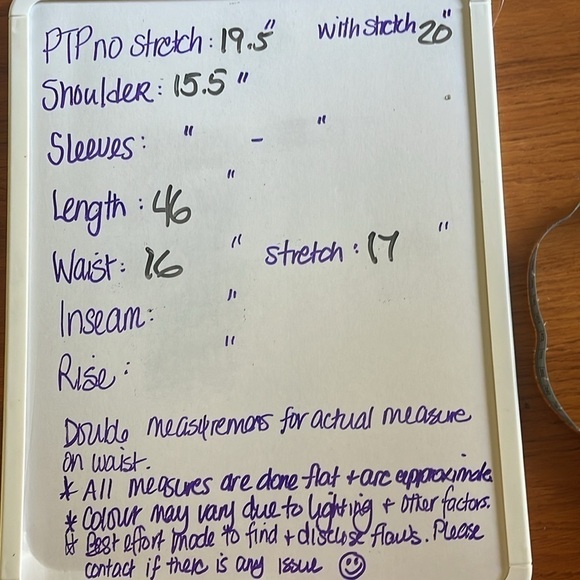 PTP no stretch: 19.5" with stretch 20"
Shoulder: 15.5"
Sleeves: " - "
Length: 46 "
Waist: 16 " stretch: 17 "
Inseam: "
Rise: "
Double measuremons for actual measure
on waist.
* All measures are done flat + are approximate
* Colour may vary due to lighting + other factors.
* Best effort made to find + disclose flaws. Please
contact if there is any issue ☺